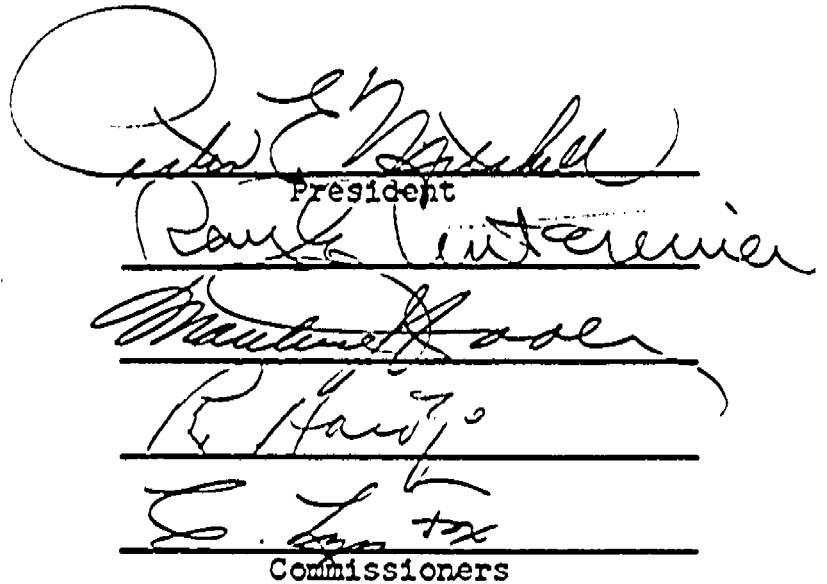 Peter E Mitchell
President
Ray E. Untereiner
Matthew J. Dooley
R Hardy
C. Lyn Fox
Commissioners